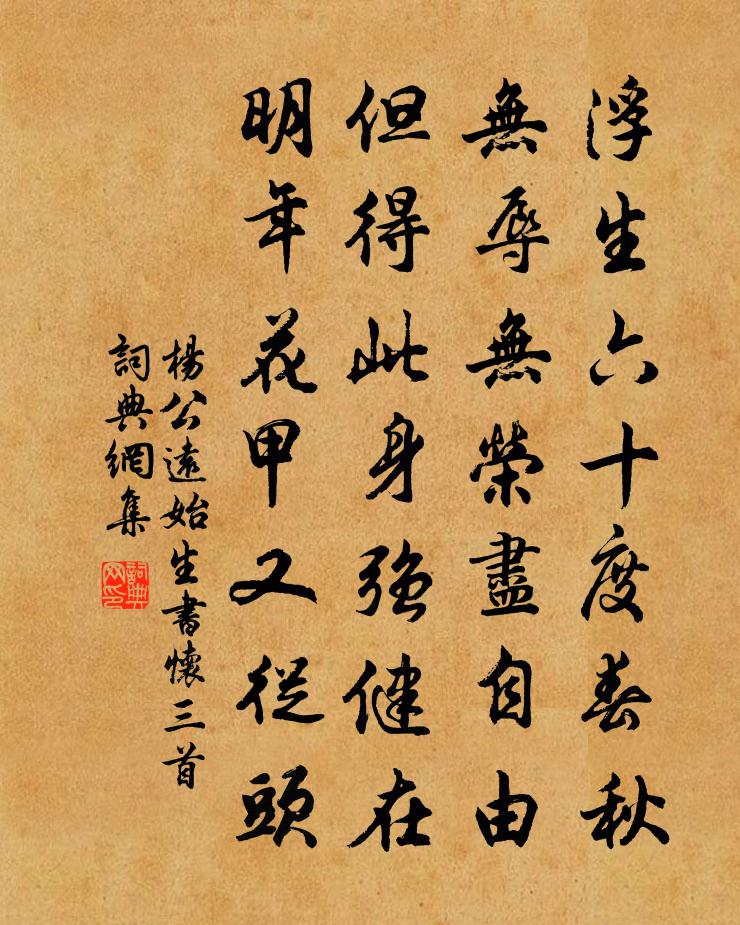 浮生六十度春秋
無辱無榮盡自由
但得此身強健在
明年花甲又從頭
楊公遠始生書懷三首
詞典網集
詞典網印